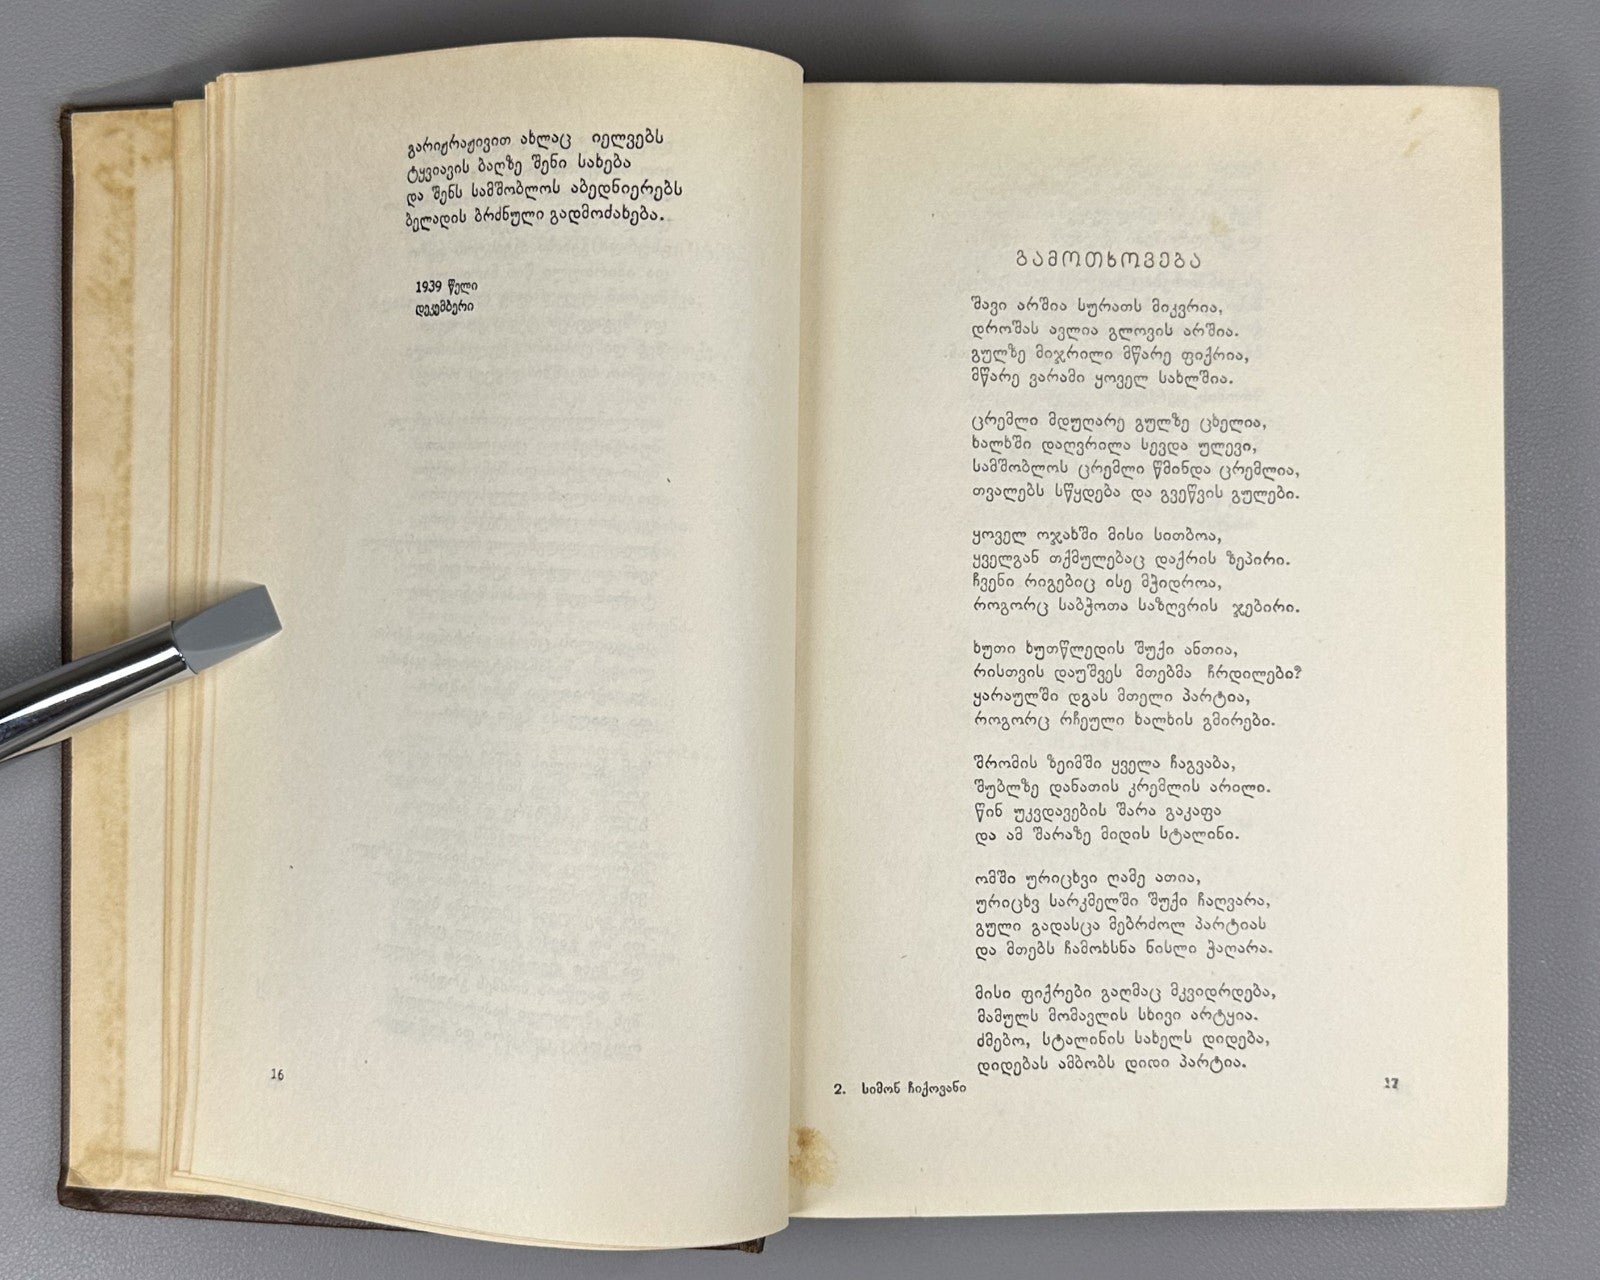 გარიჟრაჟივით ახლაც იელვებს
ტყვიავის ბაღზე შენი სახება
და შენს სამშობლოს აბედნიერებს
ბელადის ბრძნული გადმოძახება.
1939 წელი
დეკემბერი
16
გამოთხოვება
შავი არშია სურათს მიკვრია,
დროშას ავლია გლოვის არშია.
გულზე მიჯრილი მწარე ფიქრია,
მწარე ვარამი ყოველ სახლშია.
ცრემლი მდუღარე გულზე ცხელია,
ხალხში დაღვრილა სევდა ულევი,
სამშობლოს ცრემლი წმინდა ცრემლია,
თვალებს სწყდება და გვეწვის გულები.
ყოველ ოჯახში მისი სითბოა,
ყველგან თქმულებაც დაქრის ზეპირი.
ჩვენი რიგებიც ისე მჭიდროა,
როგორც საბჭოთა საზღვრის ჯებირი.
ხუთი ხუთწლედის შუქი ანთია,
რისთვის დაუშვეს მთებმა ჩრდილები?
ყარაულში დგას მთელი პარტია,
როგორც რჩეული ხალხის გმირები.
შრომის ზეიმში ყველა ჩაგვაბა,
შუბლზე დანათის კრემლის არილი.
წინ უკვდავების შარა გაკაფა
და ამ შარაზე მიდის სტალინი.
ომში ურიცხვი ღამე ათია,
ურიცხვ სარკმელში შუქი ჩაღვარა,
გული გადასცა მებრძოლ პარტიას
და მთებს ჩამოხსნა ნისლი ჭაღარა.
მისი ფიქრები გაღმაც მკვიდრდება,
მამულს მომავლის სხივი არტყია.
ძმებო, სტალინის სახელს დიდება,
დიდებას ამბობს დიდი პარტია.
2. სიმონ ჩიქოვანი
17